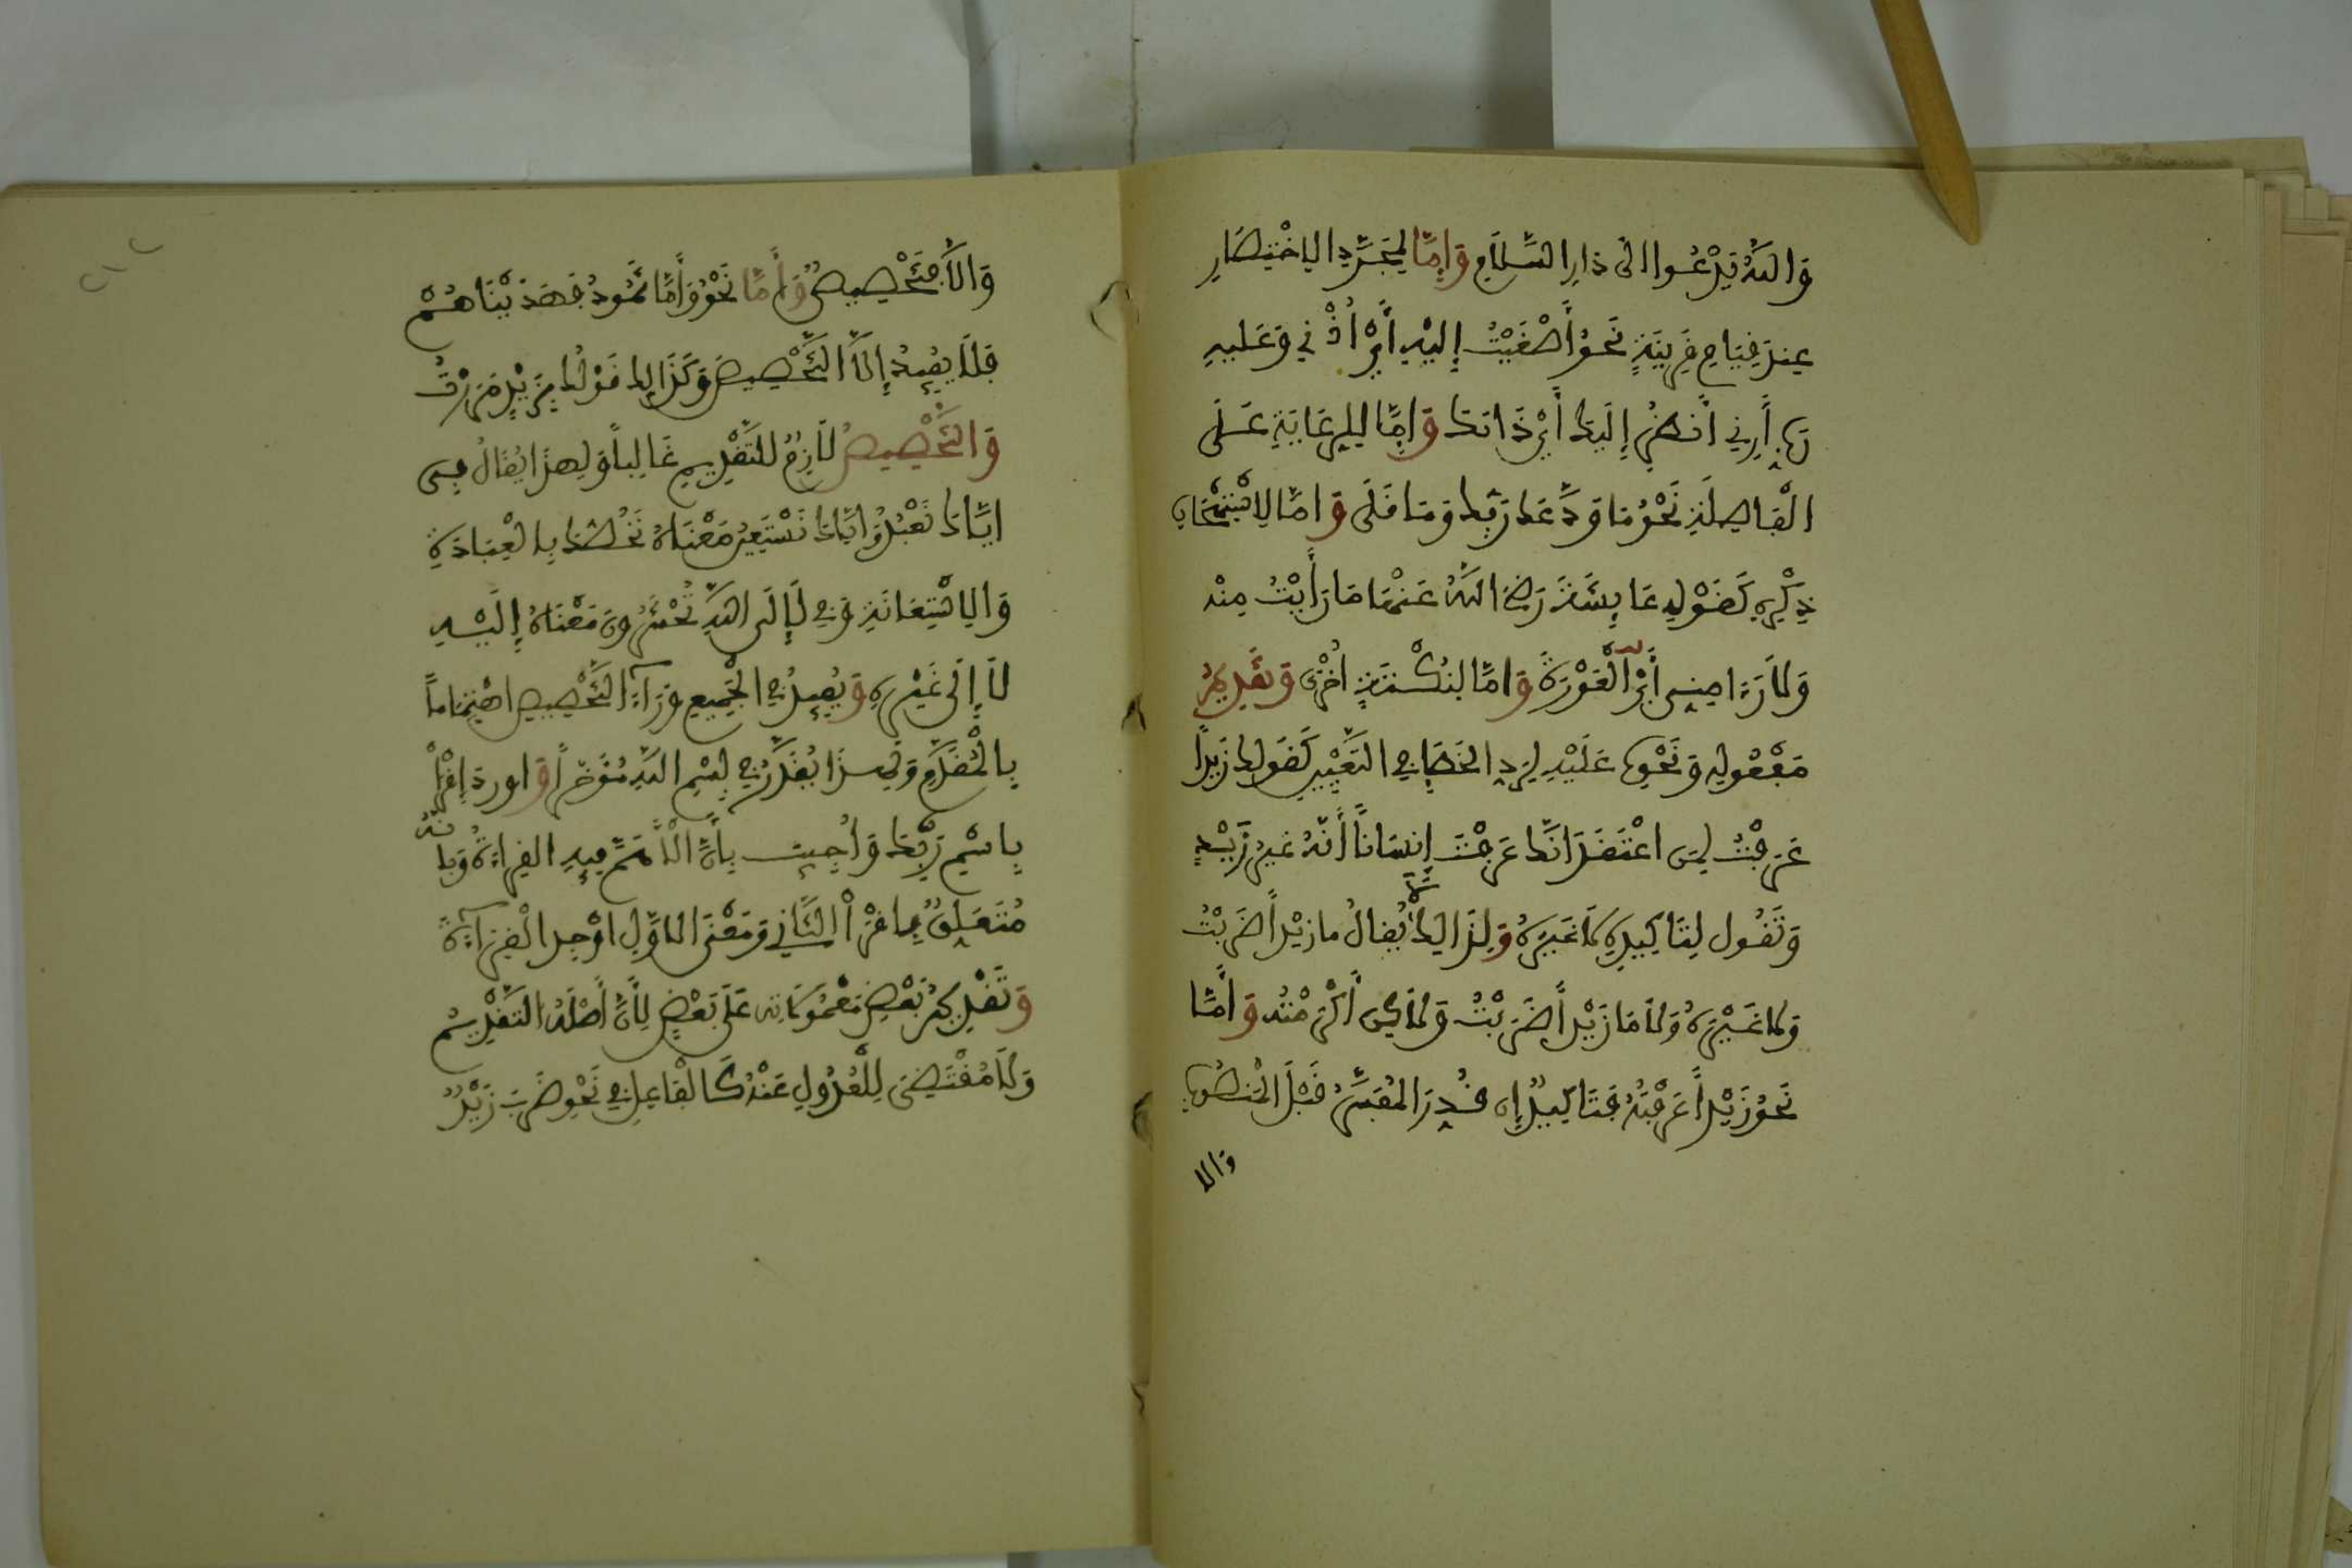 وَاللَّهُ يَدْعُوا إلى دَارِ السَّلَامِ وَإِمَّا لِمُجَرَّدِ الِاخْتِصَارِ
عِندَ قِيَامِ قَرِينَةٍ نَحْوُ أَصْغَيْتُ إِلَيْهِ أَيْ أُذُنِي وَعَلَيهِ
رَبِّ أَرِنِي أَنظُرْ إِلَيْكَ أَيْ ذَاتَكَ وَإِمَّا لِلرِّعَايَةِ عَلَى
الْفَاصِلَةِ نَحْوُ مَا وَدَّعَكَ رَبُّكَ وَمَا قَلَى وَإِمَّا لِاسْتِهْجَانِ
ذِكْرِهِ كَقَوْلِ عَائِشَةَ رَضِيَ اللَّهُ عَنْهَا مَا رَأَيْتُ مِنْهُ
وَلَا رَءَا مِنِّي أَيْ الْعَوْرَةَ وَإِمَّا لِنُكْتَةٍ أُخْرَى وَتَقْدِيمُ
مَفْعُولِهِ وَنَحْوِهِ عَلَيْهِ لِرَدِّ الْخَطَإِ فِي التَّعْيِينِ كَقَوْلِكَ زَيْداً
عَرَفْتُ لِمَنِ اعْتَقَدَ أَنَّكَ عَرَفْتَ إِنسَاناً أَنَّهُ غَيْرُ زَيْدٍ
وَتَقُولُ لِتَاكِيدِهِ لَا غَيْرَهُ وَلِذَالِكَ لَا يُقَالُ مَا زَيْداً ضَرَبْتُ
وَلَا غَيْرَهُ وَلَا مَا زَيْداً ضَرَبْتُ وَلَاكِنْ أَكْرَمْتُهُ وَأَمَّا
نَحْوُ زَيْداً عَرَفْتُهُ فَتَاكِيدٌ إِن قُدِّرَ الْمُفَسِّرُ قَبْلَ الْمَنصُوبِ
وَالا
وَإِلَّا فَتَخْصِيصٌ وَأَمَّا نَحْوُ وَأَمَّا ثَمُودُ فَهَدَيْنَاهُمْ
فَلَا يُفِيدُ إِلَّا التَّخْصِيصَ وَكَذَالِكَ قَوْلُكَ بِزَيْدٍ مَرَرْتُ
وَالتَّخْصِيصُ لَازِمٌ لِلتَّقْدِيمِ غَالِباً وَلِهَذَا يُقَالُ فِي
إِيَّاكَ نَعْبُدُ وَإِيَّاكَ نَسْتَعِينُ مَعْنَاهُ نَخُصُّكَ بِالْعِبَادَةِ
وَالِاسْتِعَانَةِ وَفِي لَإِلَى اللَّهِ تُحْشَرُونَ مَعْنَاهُ إِلَيْهِ
لَا إِلَى غَيْرِهِ وَيُفِيدُ فِي الْجَمِيعِ وَرَاءَ التَّخْصِيصِ اهْتِمَاماً
بِالْمُقَدَّمِ وَلِهَذَا يُقَدَّرُ فِي بِسْمِ اللَّهِ مُؤَخَّراً وَأُورِدَ اقْرَأْ
بِاسْمِ رَبِّكَ وَأُجِيبَ بِأَنَّ الْأَهَمَّ فِيهِ الْقِرَاءَةُ وَبِأَنَّهُ
مُتَعَلِّقٌ بِاقْرَأْ الثَّانِي وَمَعْنَى الْأَوَّلِ أَوْجِدِ الْقِرَاءَةَ
وَتَقْدِيمُ بَعْضِ مَعْمُولَاتِهِ عَلَى بَعْضٍ لِأَنَّ أَصْلَهُ التَّقْدِيمُ
وَلَا مُقْتَضَى لِلْعُدُولِ عَنْهُ كَالْفَاعِلِ فِي نَحْوِ ضَرَبَ زَيْدٌ